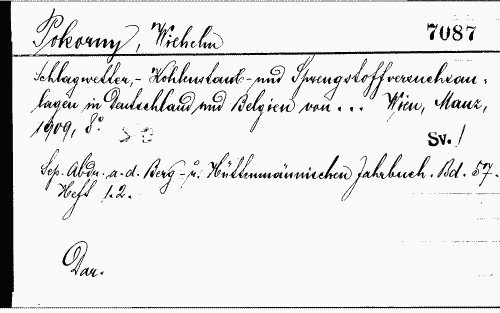 Pokorny, Wilhelm 7087
Schlagwetter,- Kohlenstaub- und Sprengstoffversuchsan-
lagen in Deutschland und Belgien von ... Wien, Manz,
1909, 8°.
Sv. /
Sep. Abdr. a. d. Berg- u. Hüttenmännischen Jahrbuch. Bd. 57.
Heft 1. 2.
Dar.